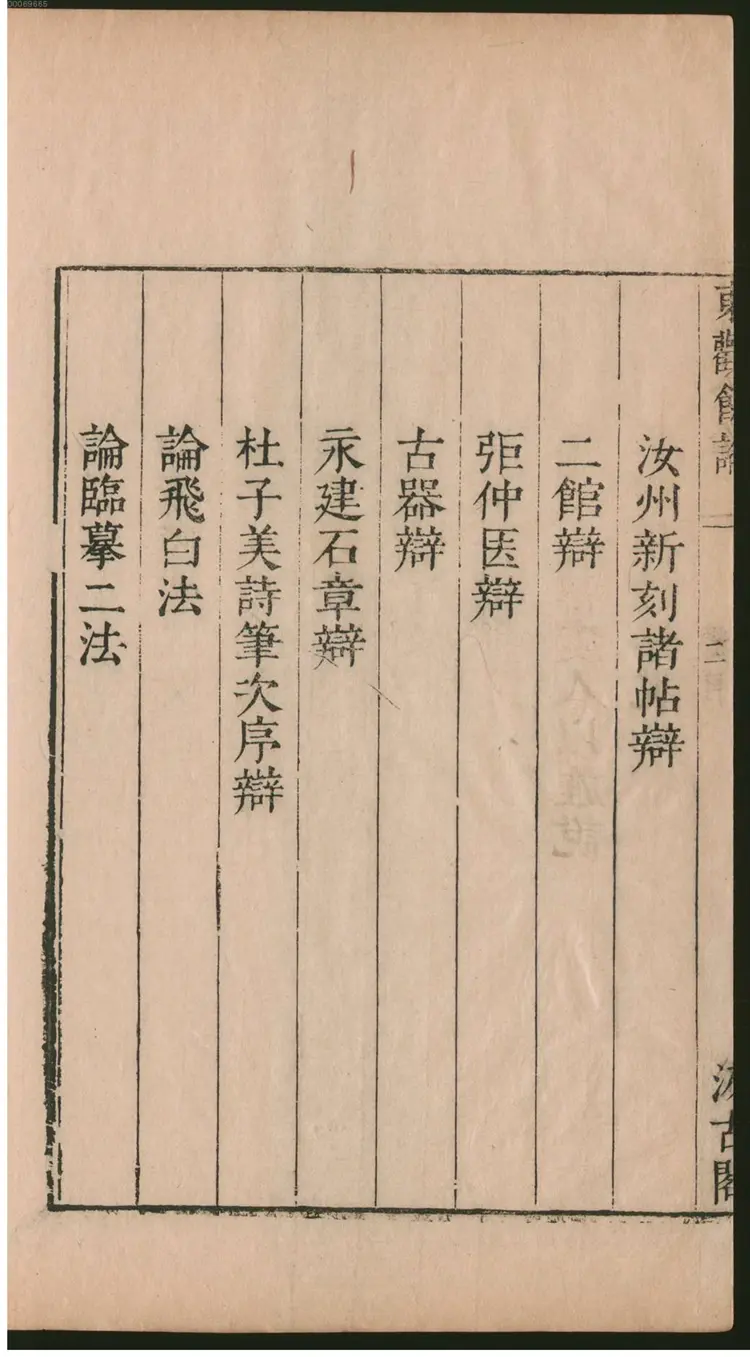 00069665
東觀餘論
二
汝州新刻諸帖辯
二館辯
弡仲医辯
古器辯
永建石章辯
杜子美詩筆次序辯
論飛白法
論臨摹二法
汲古閣